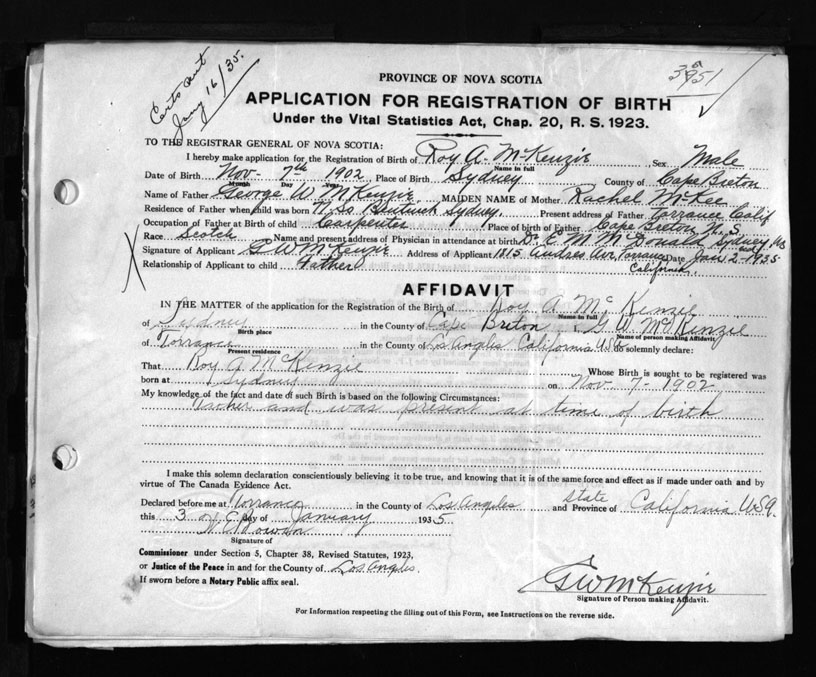 Certs sent
Jany 16/35.
3951
PROVINCE OF NOVA SCOTIA
APPLICATION FOR REGISTRATION OF BIRTH
Under the Vital Statistics Act, Chap. 20, R. S. 1923.
TO THE REGISTRAR GENERAL OF NOVA SCOTIA:
I hereby make application for the Registration of Birth of Roy A. McKenzie, Sex Male
Name in full
Date of Birth Nov- 7th 1902, Place of Birth Sydney County of Cape Breton
Month Day Year
Name of Father George W McKenzie, MAIDEN NAME of Mother Rachel McKee
Residence of Father when child was born Sydney. Present address of Father Torrance Calif
Occupation of Father at Birth of child Carpenter Place of birth of Father Cape Breton N.S.
Race Scotch Name and present address of Physician in attendance at birth Dr. E M McDonald Sydney NS
Signature of Applicant G W McKenzie Address of Applicant 1815 Andreo Ave, Torrance Date Jan 2-1935
California
Relationship of Applicant to child Father
AFFIDAVIT
IN THE MATTER of the application for the Registration of the Birth of Roy A Mc Kenzie
Name in full
of Sydney in the County of Cape Breton I, G W McKenzie
Birth place Name of person making Affidavit
of Torrance in the County of Los Angeles California USA to solemnly declare:
Present residence
That Roy A McKenzie Whose Birth is sought to be registered was
born at Sydney on Nov 7-1902
My knowledge of the fact and date of such Birth is based on the following Circumstances:
Father and was present at time of birth
I make this solemn declaration conscientiously believing it to be true, and knowing that it is of the same force and effect as if made under oath and by
virtue of The Canada Evidence Act.
Declared before me at Torrance in the County of Los Angeles and State Province of California USA.
this 3 day of January 1935
Signature of
Commissioner under Section 5, Chapter 38, Revised Statutes, 1923,
or Justice of the Peace in and for the County of Los Angeles.
If sworn before a Notary Public affix seal.
G W McKenzie
Signature of Person making Affidavit.
For Information respecting the filling out of this Form, see Instructions on the reverse side.